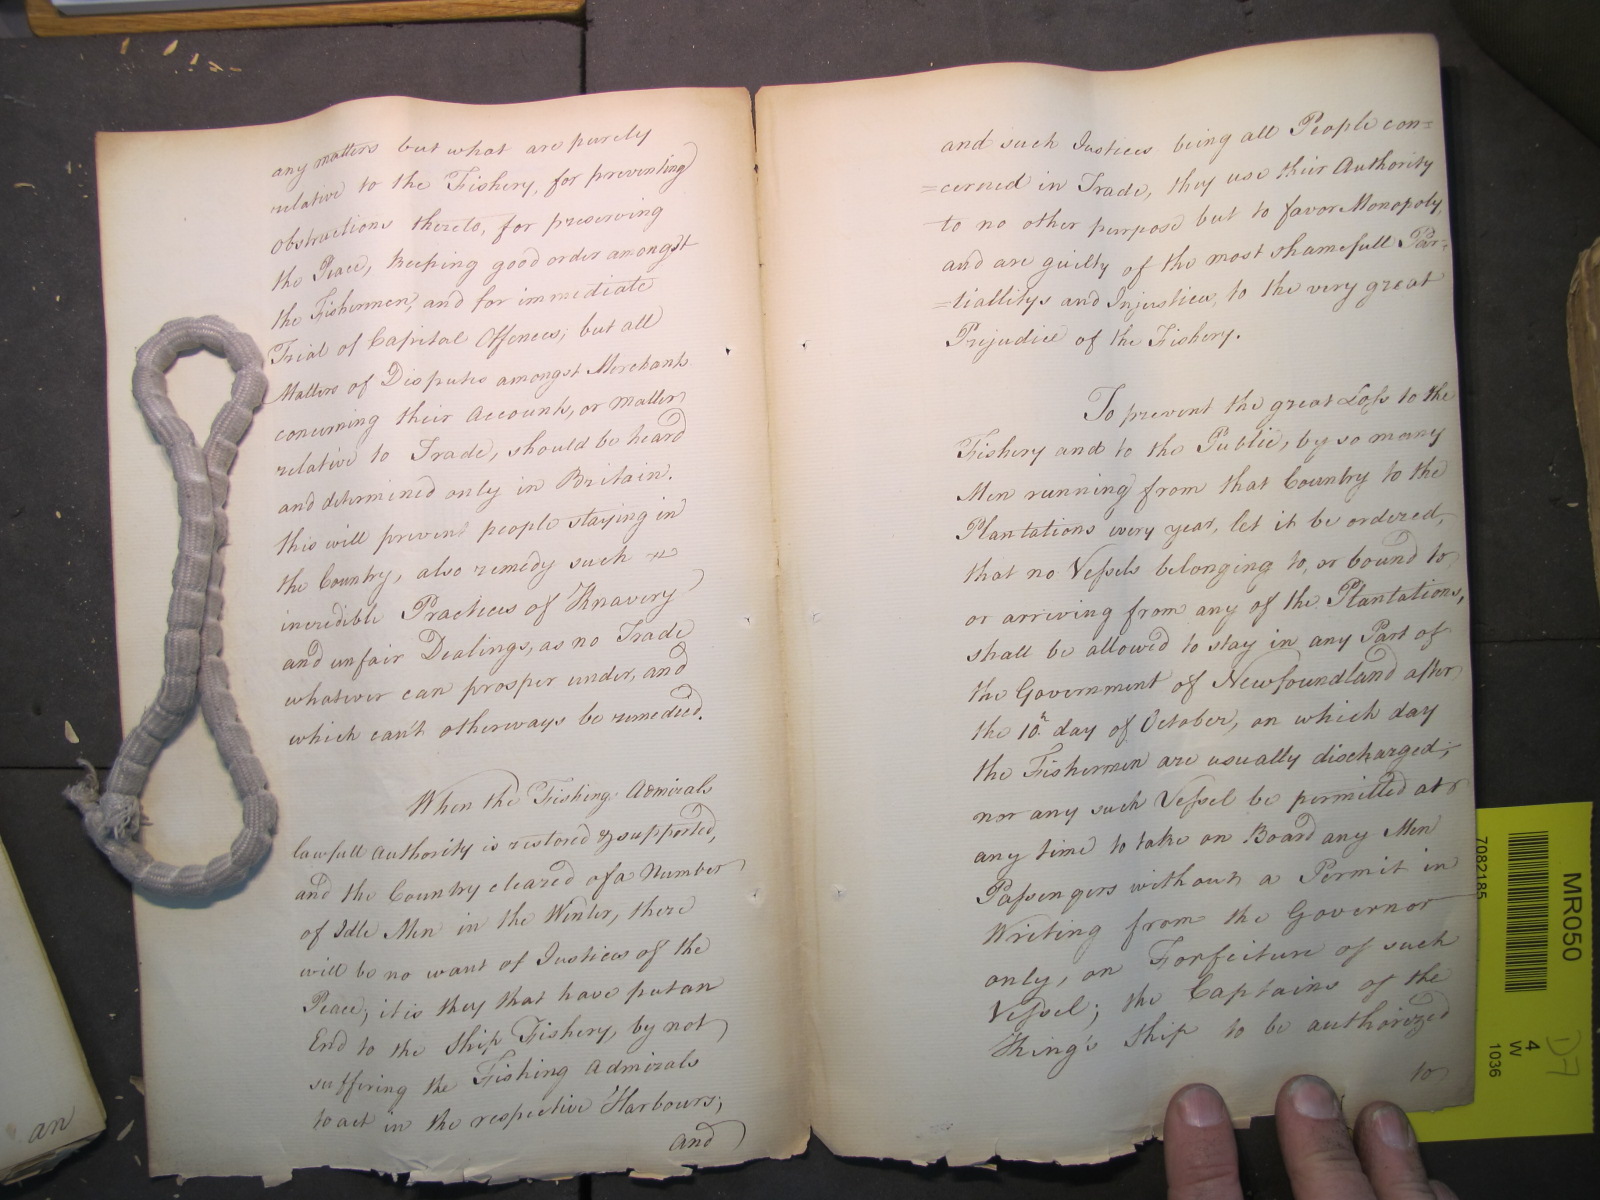 any matters but what are purely
relative to the Fishery, for preventing
obstructions thereto, for preserving
the Peace, keeping good order amongst
the Fishermen, and for immediate
Trial of Capital Offences; but all
Matters of Disputes amongst Merchants
concerning their Accounts, or Matters
relative to Trade, should be heard
and determined only in Britain.
this will prevent people staying in
the Country, also remedy such
incredible Practices of Knavery
and unfair Dealings, as no Trade
whatever can prosper under, and
which can't otherways be remedied.
When the Fishing Admirals
lawfull Authority is restored & supported,
and the Country cleared of a Number
of Idle Men in the Winter, there
will be no want of Justices of the
Peace; it is they that have put an
End to the Ship Fishery, by not
suffering the Fishing Admirals
to act in the respective Harbours;
and
and such Justices being all People con=
=cerned in Trade, they use their Authority
to no other purpose but to favor Monopoly,
and are guilty of the most shamefull Par=
=tiallitys and Injustice, to the very great
Prejudice of the Fishery.
To prevent the great Loss to the
Fishery and to the Public, by so many
Men running from that Country to the
Plantations every year, let it be ordered,
that no Vessels belonging to, or bound to
or arriving from any of the Plantations,
shall be allowed to stay in any Part of
the Government of Newfoundland after
the 10th day of October, on which day
the Fishermen are usually discharged;
nor any such Vessel be permitted at
any time to take on Board any Men
Passengers without a Permit in
Writing from the Governor
only, on Forfeiture of such
Vessel; the Captains of the
King's Ship to be authorized
to
an
7082185
MR050
4
W
1036
D7